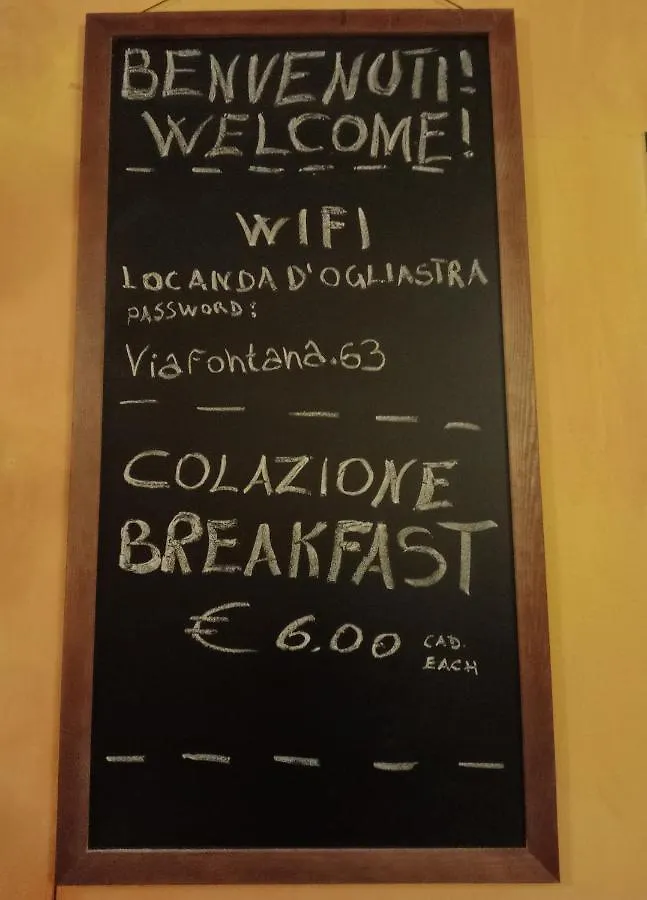 BENVENUTI!
WELCOME!
WIFI
LOCANDA D'OGLIASTRA
PASSWORD:
Viafontana.63
COLAZIONE
BREAKFAST
€ 6.00 CAD.
EACH